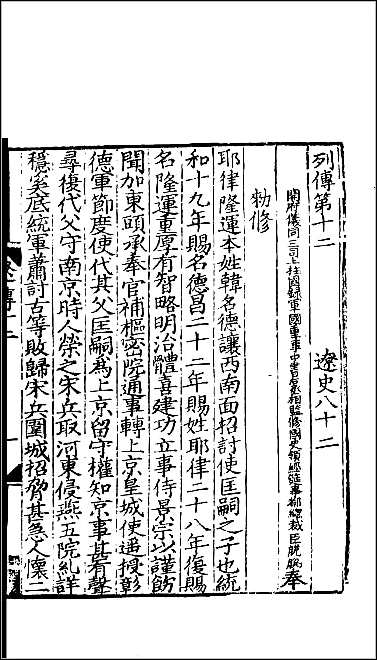 列傳第十二　遼史八十二
開府儀同三司上柱國錄軍國重事中書右丞相監修國史領經筵事都總裁臣脫脫奉
勅修
耶律隆運本姓韓名德讓西南面招討使匡嗣之子也統
和十九年賜名德昌二十二年賜姓耶律二十八年復賜
名隆運重厚有智略明治體喜建功立事侍景宗以謹飭
聞加東頭承奉官補樞密院通事轉上京皇城使遥授彰
德軍節度使代其父匡嗣為上京留守權知京事甚有聲
尋復代父守南京時人榮之宋兵取河東侵燕五院糺詳
穩奚底統軍蕭討古等敗歸宋兵圍城招脅甚急人懷二